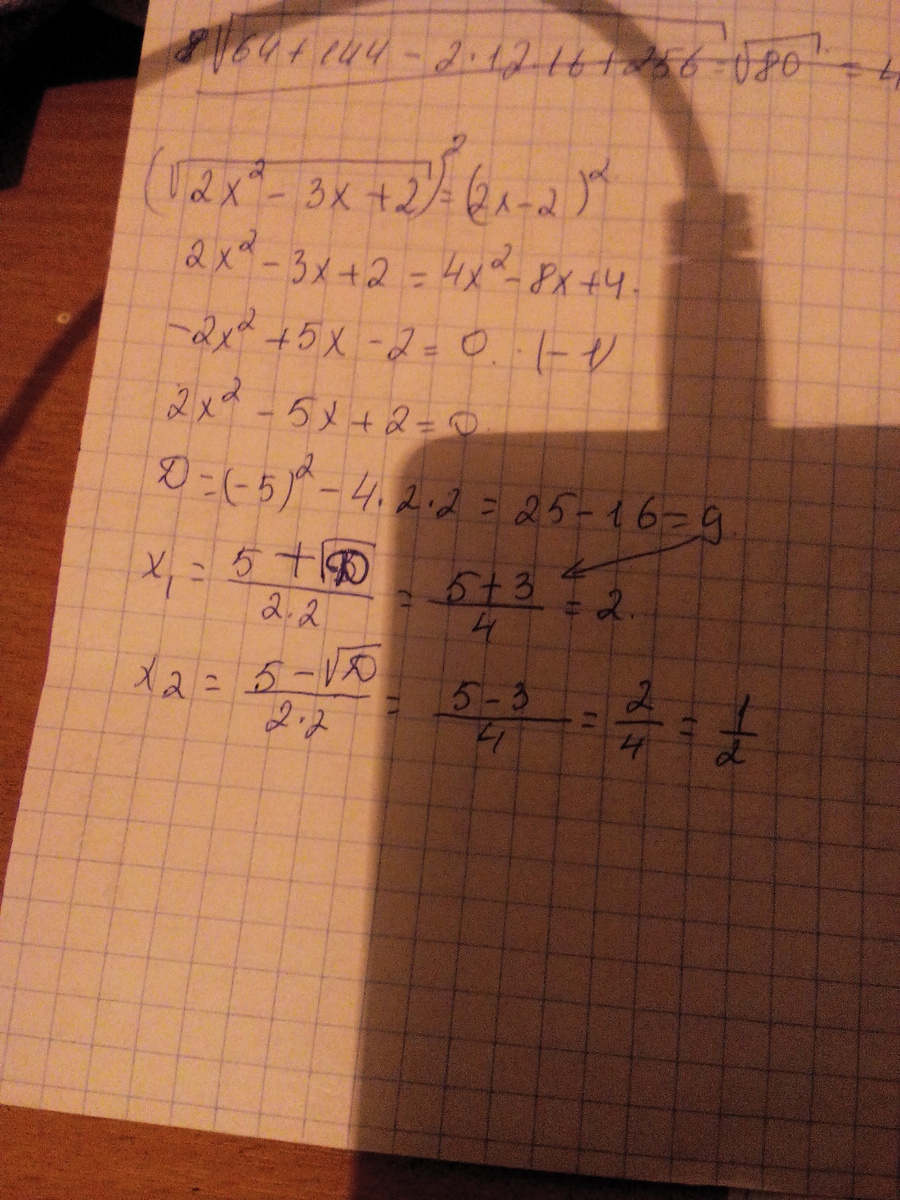 8√64+144-2·12·16+256=√80=4
(√2x²-3x+2)²=(2x-2)²
2x²-3x+2=4x²-8x+4.
-2x²+5x-2=0.·(-1)
2x²-5x+2=0.
D=(-5)²-4·2·2=25-16=9
x₁=(5+√D)/(2·2)=(5+3)/4=2.
x₂=(5-√D)/(2·2)=(5-3)/4=2/4=1/2